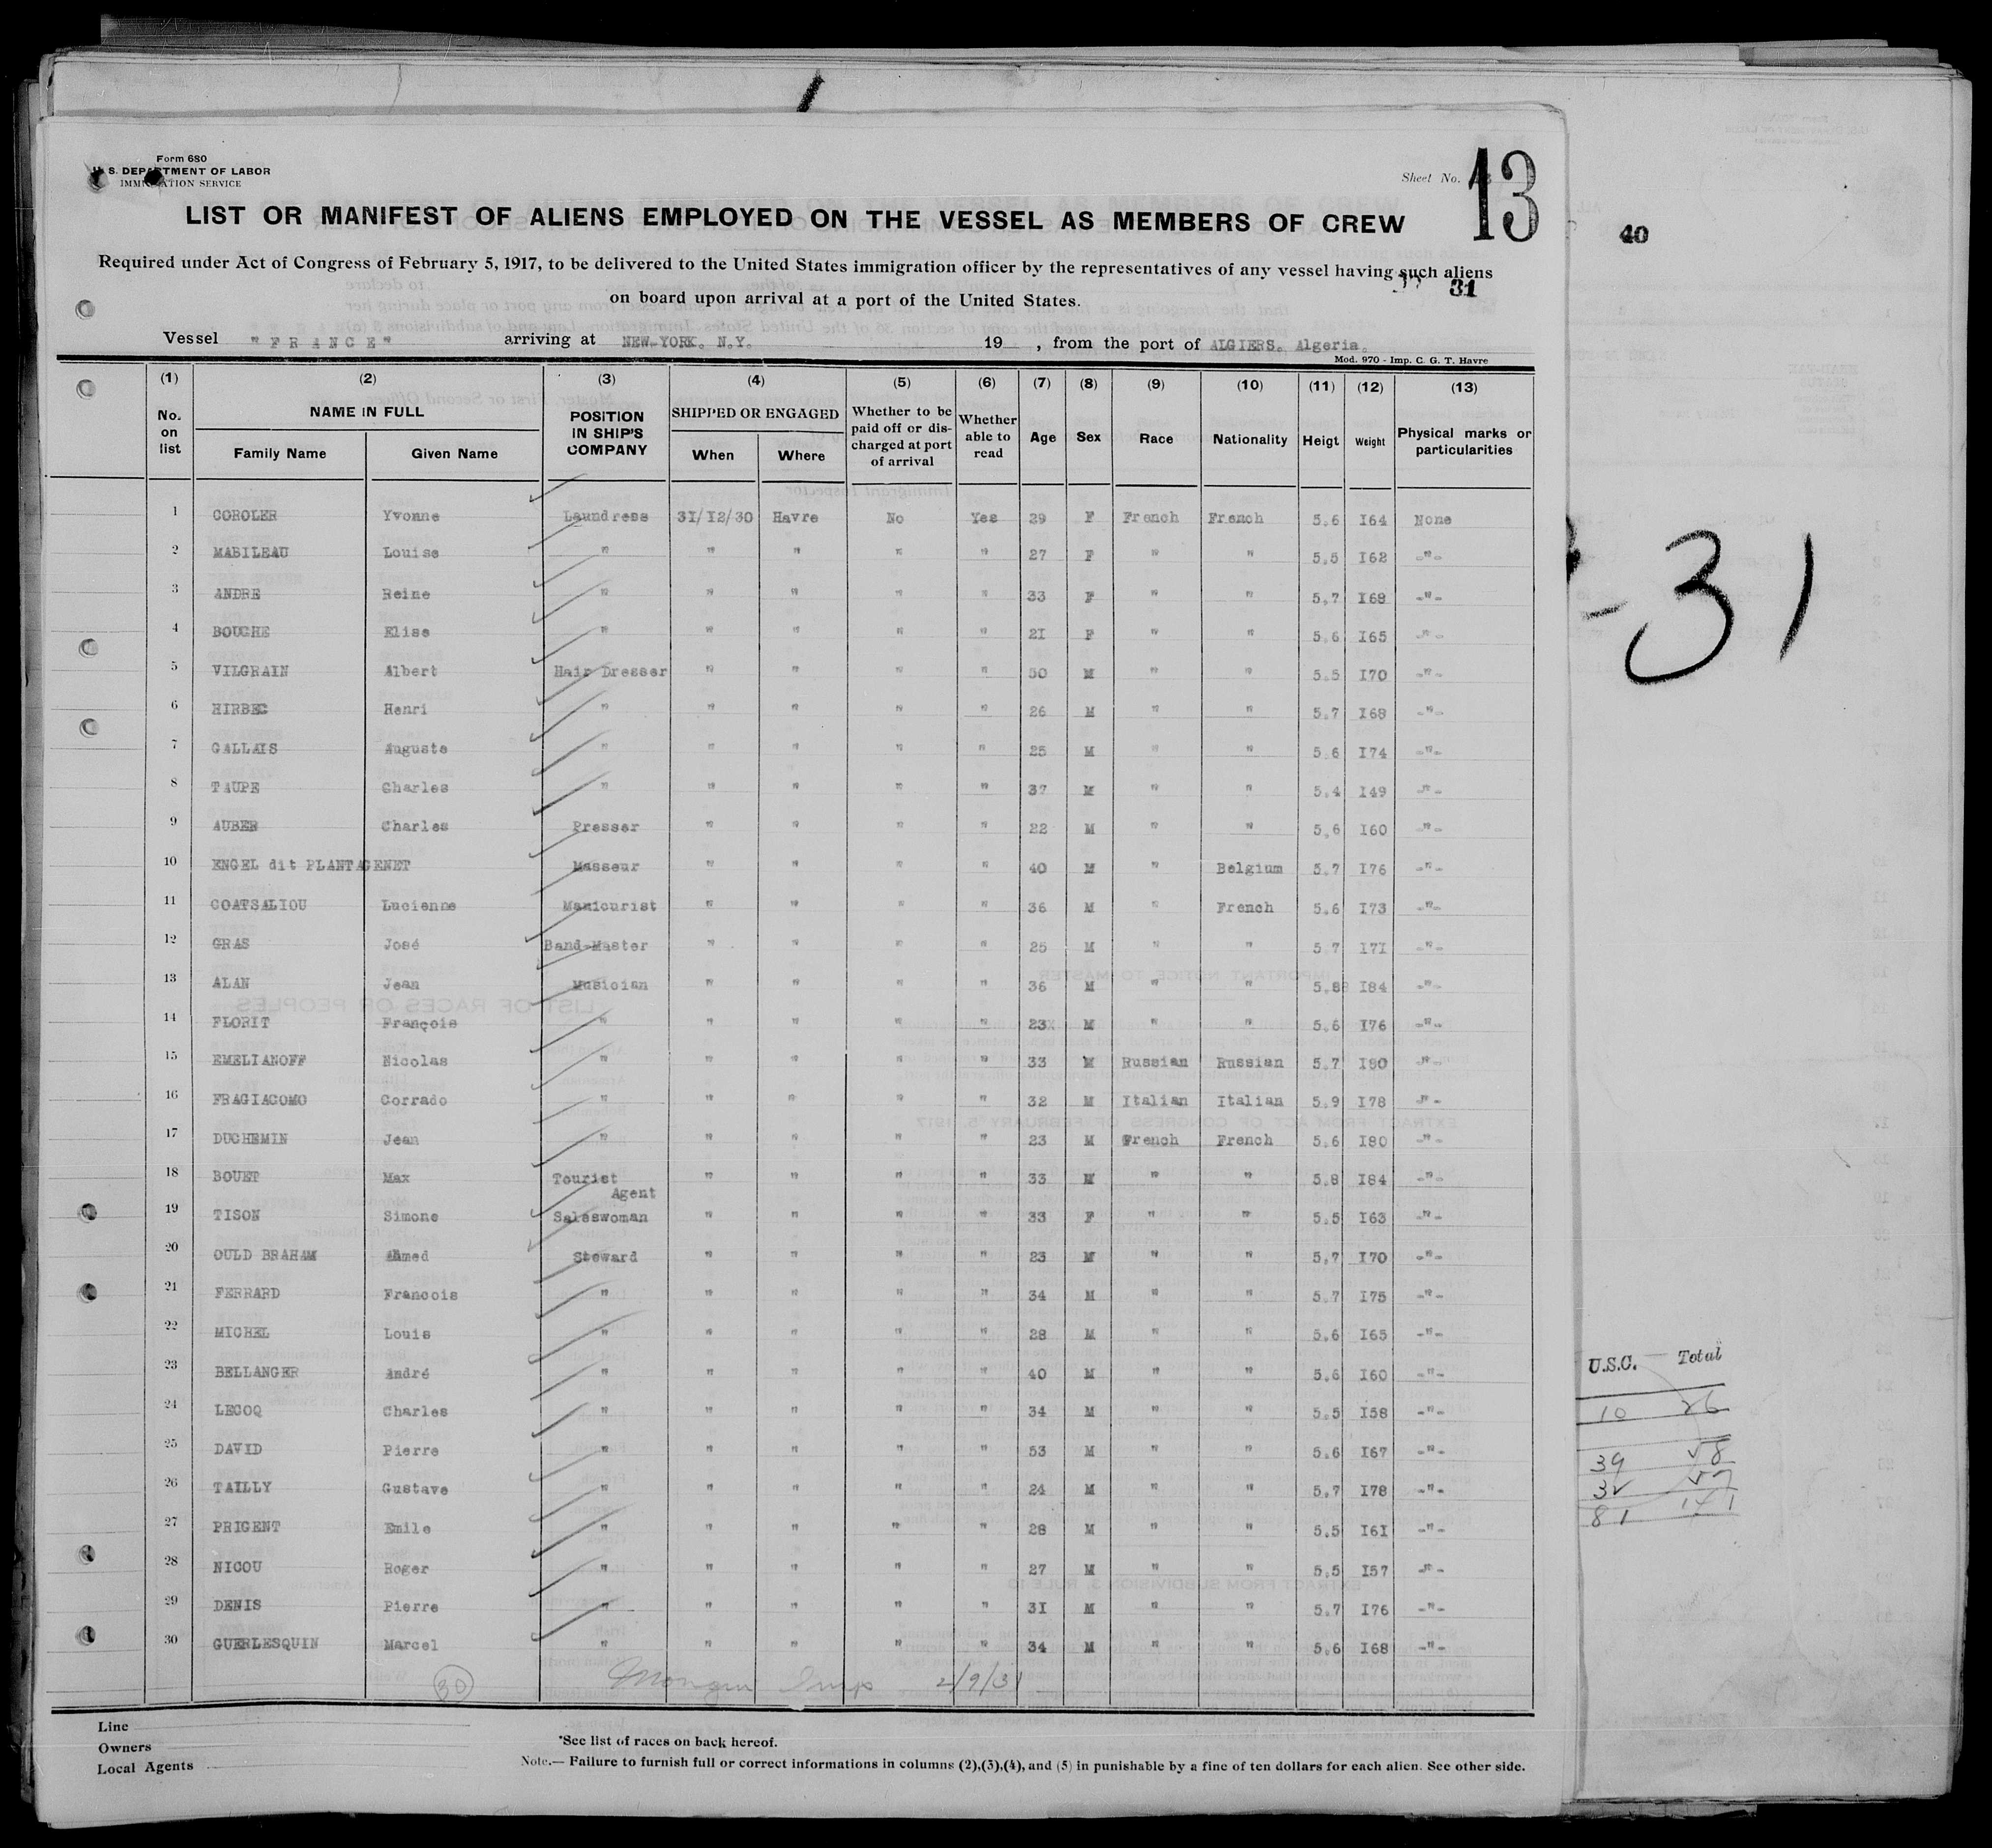 Form 680
U. S. DEPARTMENT OF LABOR
IMMIGRATION SERVICE
Sheet No. 13
LIST OR MANIFEST OF ALIENS EMPLOYED ON THE VESSEL AS MEMBERS OF CREW
40
Required under Act of Congress of February 5, 1917, to be delivered to the United States immigration officer by the representatives of any vessel having such aliens
on board upon arrival at a port of the United States.
31
Vessel "FRANCE" arriving at NEW-YORK. N.Y. 19 , from the port of ALGIERS. Algeria.
Mod. 970 - Imp. C. G. T. Havre
(1) (2) (3) (4) (5) (6) (7) (8) (9) (10) (11) (12) (13)
No. on list NAME IN FULL Family Name Given Name POSITION IN SHIP'S COMPANY SHIPPED OR ENGAGED When Where Whether to be paid off or discharged at port of arrival Whether able to read Age Sex Race Nationality Heigt Weight Physical marks or particularities
1 COROLER Yvonne Laundress 31/12/30 Havre No Yes 29 F French French 5.6 I64 None
2 MABILEAU Louise " " " " " 27 F " " 5.5 I62 -"-
3 ANDRE Reine " " " " " 33 F " " 5.7 I68 -"-
4 BOUGHE Elise " " " " " 2I F " " 5.6 I65 -"-
5 VILGRAIN Albert Hair Dresser " " " " 50 M " " 5.5 I70 -"-
6 HIRBEC Henri " " " " " 26 M " " 5.7 I68 -"-
7 GALLAIS Auguste " " " " " 25 M " " 5.6 I74 -"-
8 TAUPE Charles " " " " " 37 M " " 5.4 I49 -"-
9 AUBER Charles Presser " " " " 22 M " " 5.6 I60 -"-
10 ENGEL dit PLANTAGENET Masseur " " " " 40 M " Belgium 5.7 I76 -"-
11 COATSALIOU Lucienne Manicurist " " " " 36 M " French 5.6 I73 -"-
12 GRAS José Band-Master " " " " 25 M " " 5.7 I7I -"-
13 ALAN Jean Musician " " " " 36 M " " 5.8 I84 -"-
14 FLORIT François " " " " " 23 M " " 5.6 I76 -"-
15 EMELIANOFF Nicolas " " " " " 33 M Russian Russian 5.7 I80 -"-
16 FRAGIACOMO Corrado " " " " " 32 M Italian Italian 5.9 I78 -"-
17 DUCHEMIN Jean " " " " " 23 M French French 5.6 I80 -"-
18 BOUET Max Tourist Agent " " " " 33 M " " 5.8 I84 -"-
19 TISON Simone Saleswoman " " " " 33 F " " 5.5 I63 -"-
20 OULD BRAHAM Ahmed Steward " " " " 23 M " " 5.7 I70 -"-
21 FERRARD Francois " " " " " 34 M " " 5.7 I75 -"-
22 MICHEL Louis " " " " " 28 M " " 5.6 I65 -"-
23 BELLANGER André " " " " " 40 M " " 5.6 I60 -"-
24 LECOQ Charles " " " " " 34 M " " 5.5 I58 -"-
25 DAVID Pierre " " " " " 53 M " " 5.6 I67 -"-
26 TAILLY Gustave " " " " " 24 M " " 5.7 I78 -"-
27 PRIGENT Emile " " " " " 28 M " " 5.5 I6I -"-
28 NICOU Roger " " " " " 27 M " " 5.5 I57 -"-
29 DENIS Pierre " " " " " 3I M " " 5.7 I76 -"-
30 GUERLESQUIN Marcel " " " " " 34 M " " 5.6 I68 -"-
30 2/9/31
Line
Owners
Local Agents
*See list of races on back hereof.
Note.— Failure to furnish full or correct informations in columns (2),(3),(4), and (5) in punishable by a fine of ten dollars for each alien. See other side.
-31
U.S.C. Total
10 26
39 58
32 57
81 141